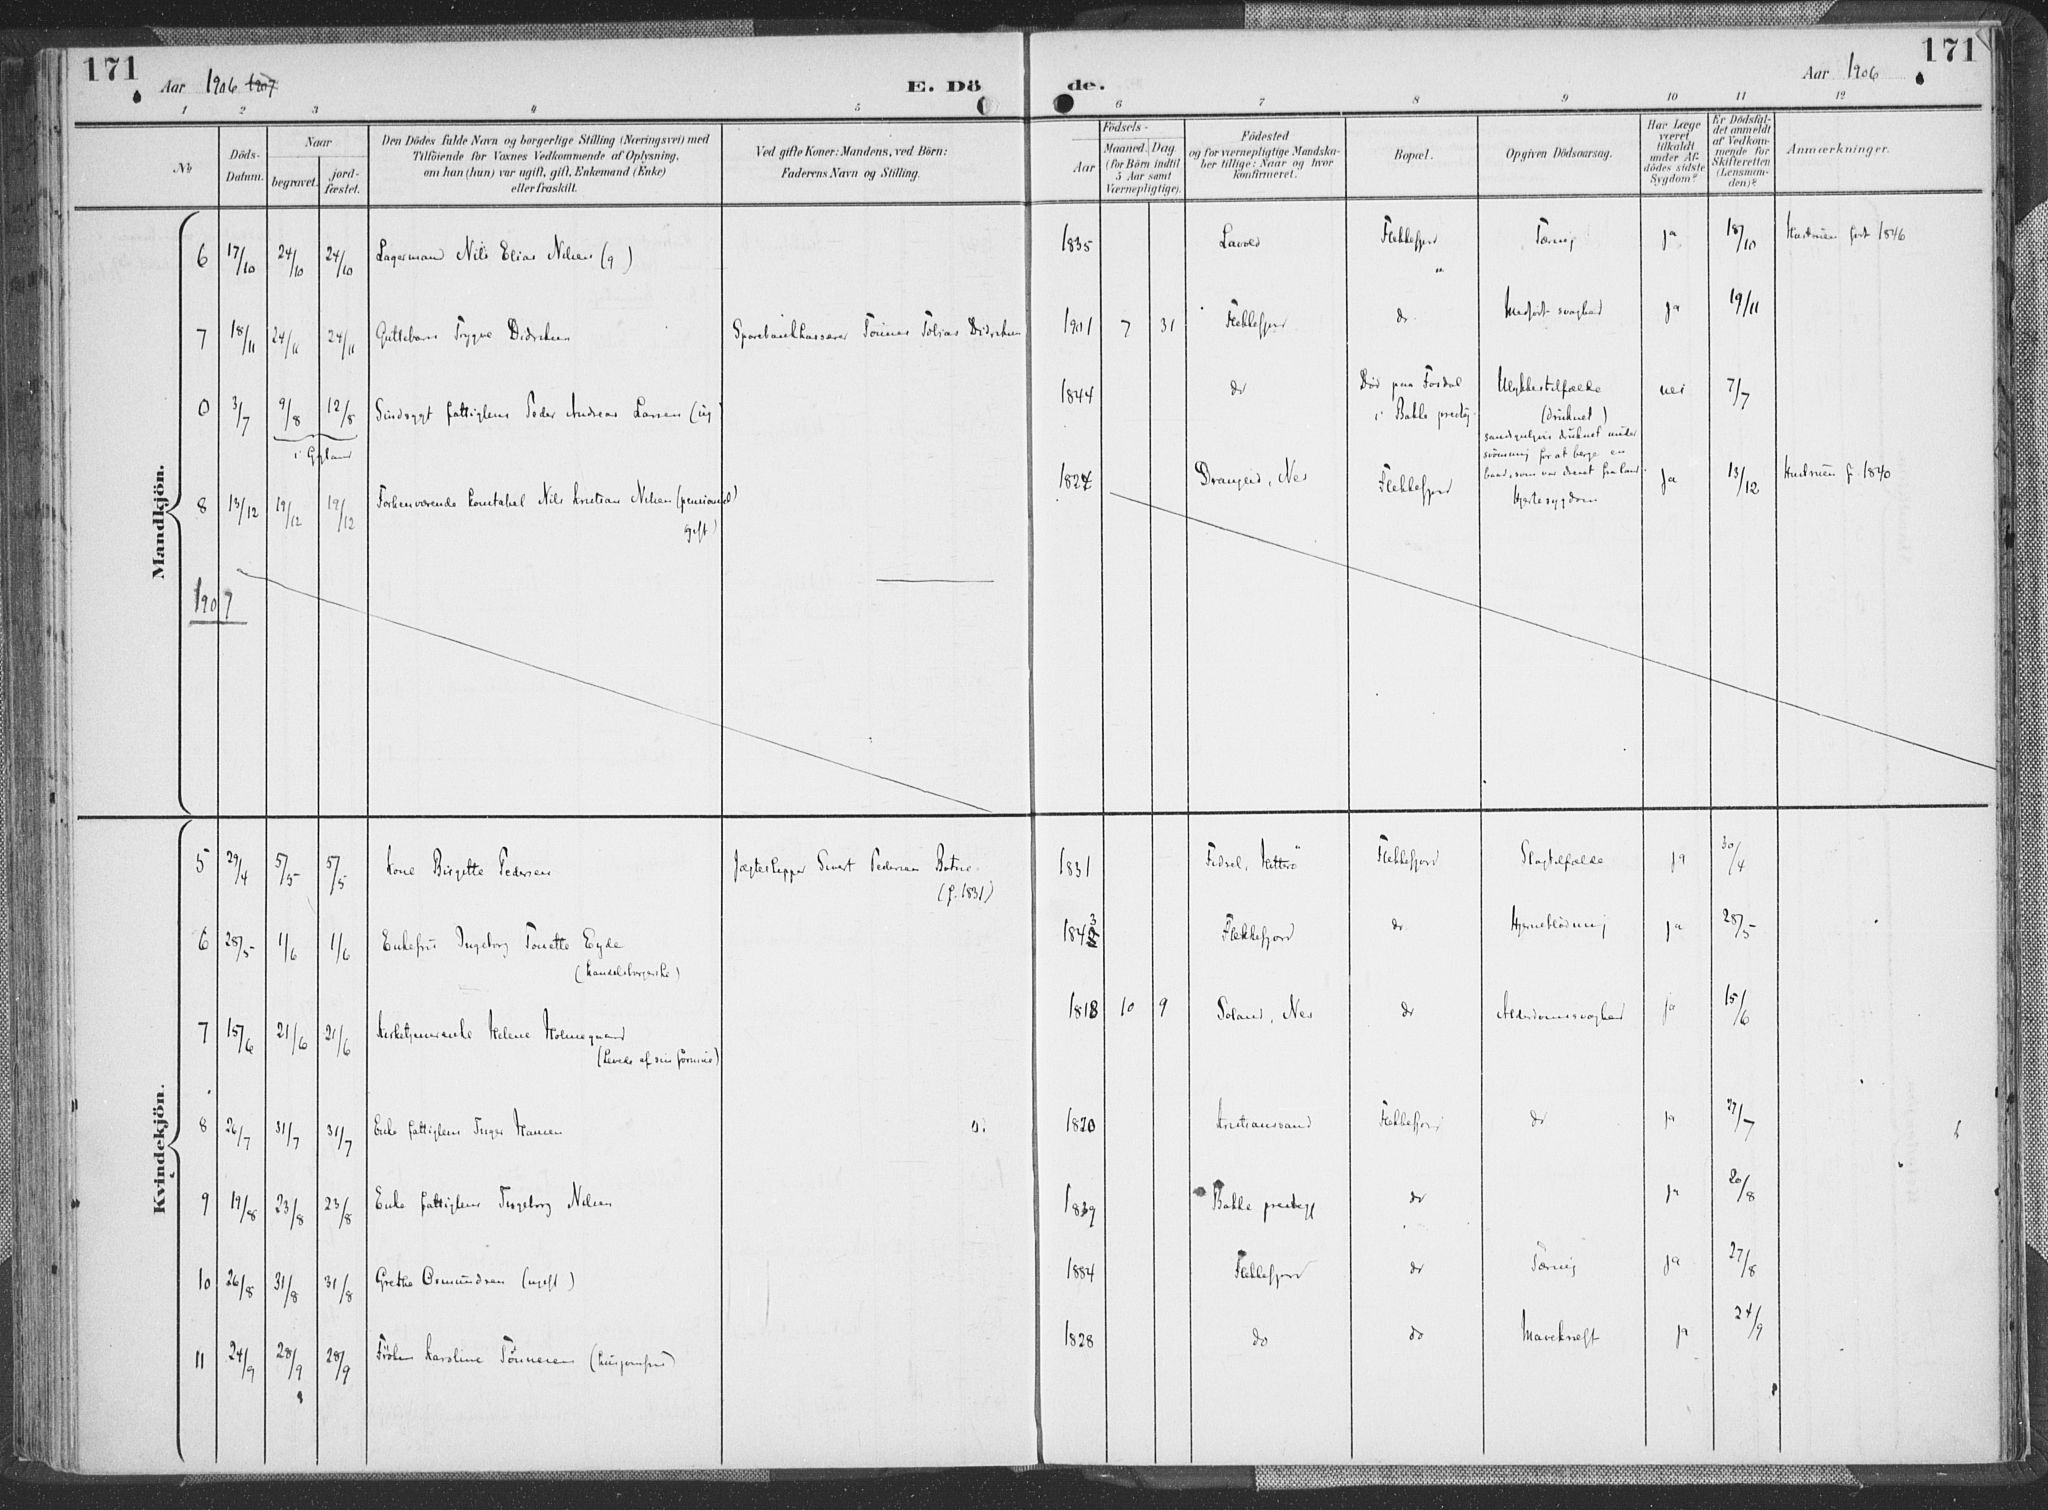 171
Aar 1906 1907
E. Dö
de.
Aar 1906
171
1 2 3 4 5 6 7 8 9 10 11 12
No
Döds-Datum.
Naar
begravet.
jord-fæstet.
Den Dödes fulde Navn og borgerlige Stilling (Næringsvei) med
Tilföiende for Voxnes Vedkommende af Oplysning,
om han (hun) var ugift, gift, Enkemand (Enke)
eller fraskilt.
Ved gifte Koner: Mandens, ved Börn:
Faderens Navn og Stilling.
Födsels-
Aar
Maaned. Dag.
(for Börn indtil
5 Aar samt
Værnepligtige).
Födested
og for værnepligtige Mandska-
ber tillige: Naar og hvor
konfirmeret.
Bopæl.
Opgiven Dödsaarsag.
Har Læge
været
tilkaldt
under Af-
dödes sidste
Sygdom?
Er Dödsfal-
det anmeldt
af Vedkom-
mende for
Skifteretten
(Lensman-
den)?
Anmærkninger.
Mandkjön.
6 17/10 24/10 24/10 Lagermand Nils Elias Nilsen (g) 1835 Flekkefjord Tæring ja 18/10 Hustruen født 1846
7 18/11 24/11 24/11 Guttebarn Trygve Didriksen Sparebankkasserer Tønnes Tobias Didriksen 1901 7 31 Flekkefjord do Medfødt svaghed ja 19/11
0 3/7 9/8 12/8 Sindssygt fattiglem Peder Andreas Larsen (ug) 1844 do Død paa Fosdal Ulykkestilfælde nei 7/7
i Gyland
i Bakke prestegj.
(druknet)
sandsynligvis druknet under
svømming for at berge en
baad, som var drevet fra land.
8 13/12 19/12 19/12 Forhenværende konstabel Nils Kristian Nilsen (pensioneret
gift)
1824 Drangeid, Nes Flekkefjord Hjertesygdom ja 13/12 Hustruen f. 1840
1907
Kvindekjön.
5 29/4 5/5 5/5 Kone Birgitte Pedersen Jægteskipper Sivert Pedersen Botne
(f. 1831)
1831 Fedsel, Hitterö Flekkefjord Slagtilfælde ja 30/4
6 28/5 1/6 1/6 Enkefru Ingeborg Tonette Eyde
(handelsborgerske)
1843 Flekkefjord do Hjerneblødning ja 28/5
7 15/6 21/6 21/6 Kirketjenerenke Helene Holmegaard
(Levede af sin formue)
1818 10 9 Soland, Nes do Alderdomssvaghed ja 15/6
8 26/7 31/7 31/7 Enke fattiglem Inger Hansen 1820 Kristianssand Flekkefjord do ja 27/7
9 19/8 23/8 23/8 Enke fattiglem Ingeborg Nilsen 1839 Bakke prestegj do ja 20/8
10 26/8 31/8 31/8 Grethe Osmundsen (ugift) 1884 Flekkefjord do Tæring ja 27/8
11 24/9 28/9 28/9 Frøken Karoline Tönnesen (husjomfru) 1828 do do Mavekræft ja 24/9